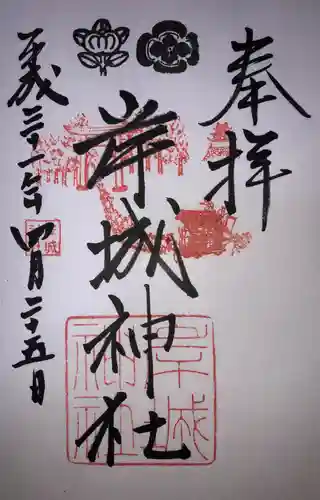 奉拝
岸城神社
平成三十一年四月二十五日
岸城
神社
城